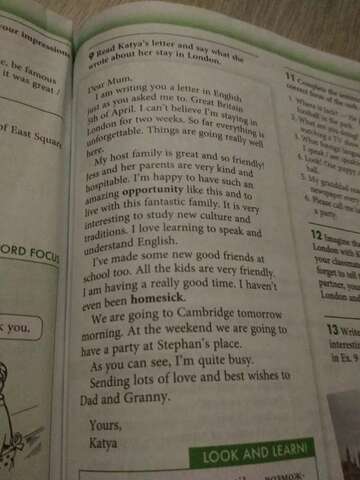 your impressions
e, be famous
it was great /
of East Squar
ORD FOCUS
k you.
9 Read Katya's letter and say what she
wrote about her stay in London.
Dear Mum,
I am writing you a letter in English
just as you asked me to. Great Britain
5th of April. I can't believe I'm staying in
London for two weeks. So far everything is
unforgettable. Things are going really well
here.
My host family is great and so friendly!
Jess and her parents are very kind and
hospitable. I'm happy to have such an
amazing opportunity like this and to
live with this fantastic family. It is very
interesting to study new culture and
traditions. I love learning to speak and
understand English.
I've made some new good friends at
school too. All the kids are very friendly.
I am having a really good time. I haven't
even been homesick.
We are going to Cambridge tomorrow
morning. At the weekend we are going to
have a party at Stephan's place.
As you can see, I'm quite busy.
Sending lots of love and best wishes to
Dad and Granny.
Yours,
Katya
LOOK AND LEARN!
11 Complete the
correct form of the
football in the
watching a TV
speak / am
4 Look! Our puppy
hall.
5 My granddad
newspaper every
6 Please call me
a party.
12 Imagine
London with K
your classmate
forget to tell
partner, your
London and
13 Write
interesting
in Ex. 9